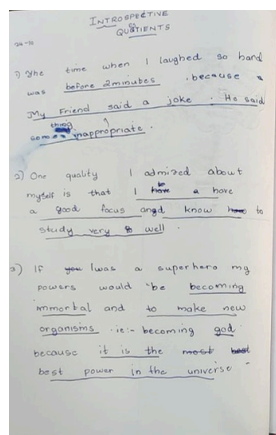 INTROSPECTIVE
QUOTIENTS
1) The time when I laughed so hard
was before 2 minutes . because
My Friend said a joke . He said
something inappropriate .
2) One quality I admired about
myself is that I have
a good focus and know to
study very well .
3) If I was a superhero my
powers would be becoming
immortal and to make new
organisms ie:- becoming god
because it is the
best power in the universe